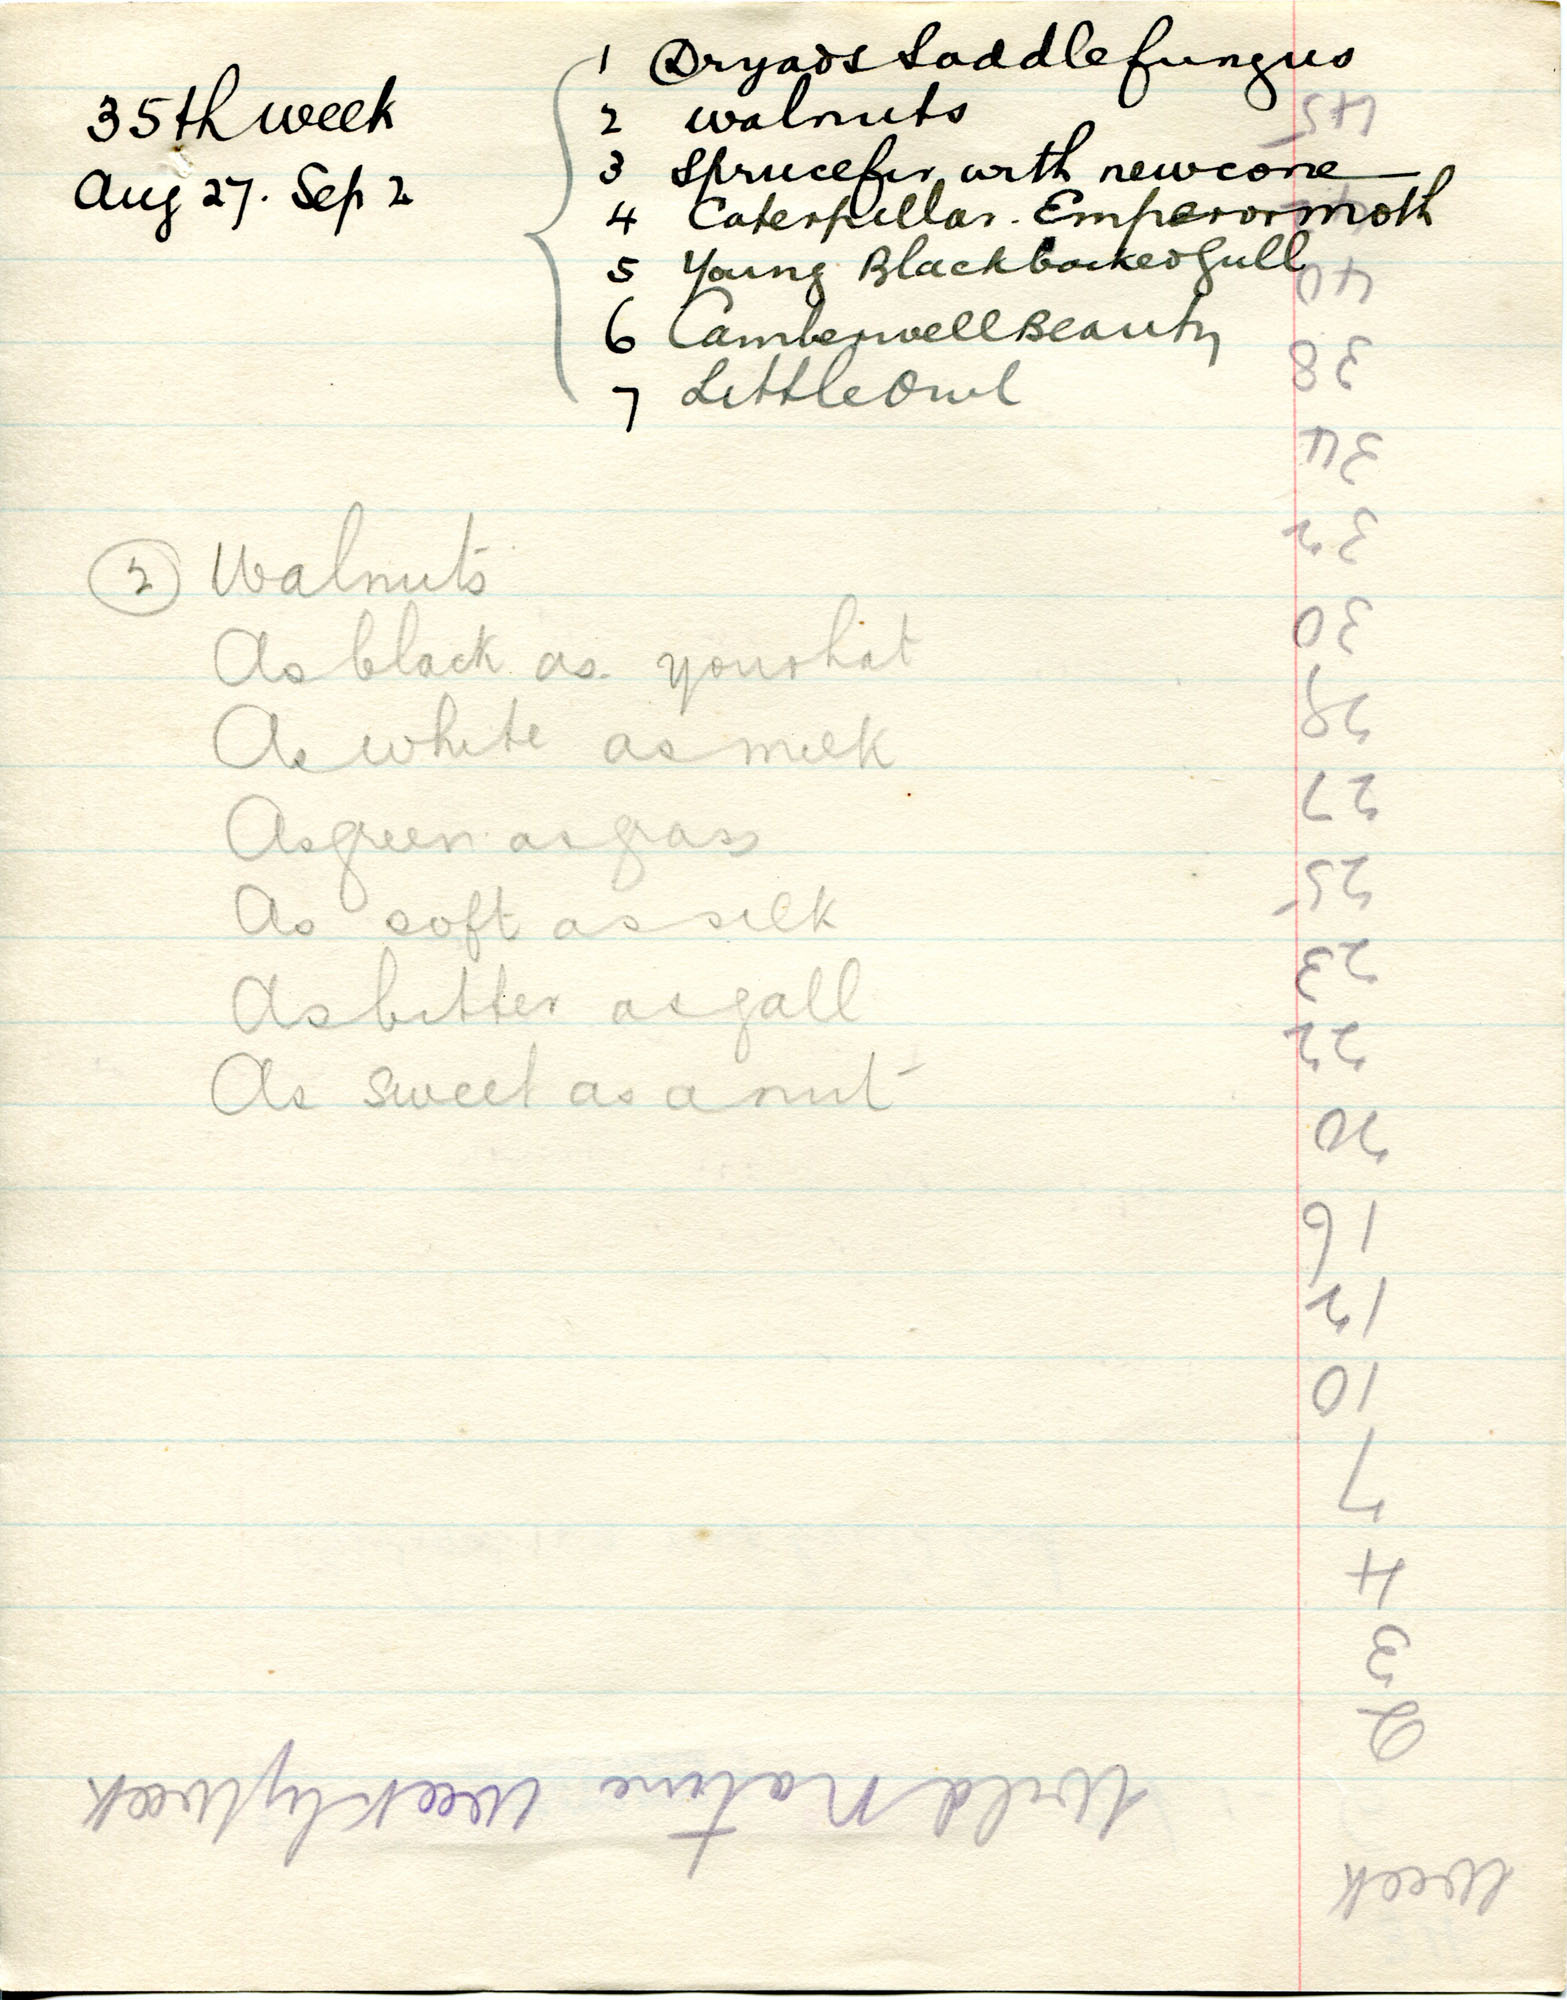 35th week
Aug 27. Sep 2
1 Dryads Saddle fungus
2 walnuts
3 Spruce fir with new cone
4 Caterpillar. Emperor moth
5 Young Blackbacked Gull
6 Camberwell Beauty
7 Little Owl
2 Walnuts
As black as your hat
As white as milk
As green as grass
As soft as silk
As bitter as gall
As sweet as a nut
Week
Wild Nature Week by Week
2
3
4
7
10
12
16
20
22
23
25
27
28
30
32
34
38
40
45